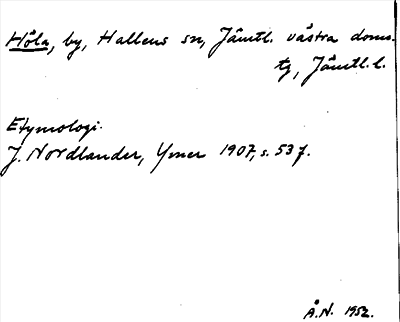 Håla, by, Hallens sn, Jämtl. västra doms.
tg, Jämtl. l.
Etymologi.
J. Nordlander, Ymer 1907, s. 53 f.
Å.N. 1952.